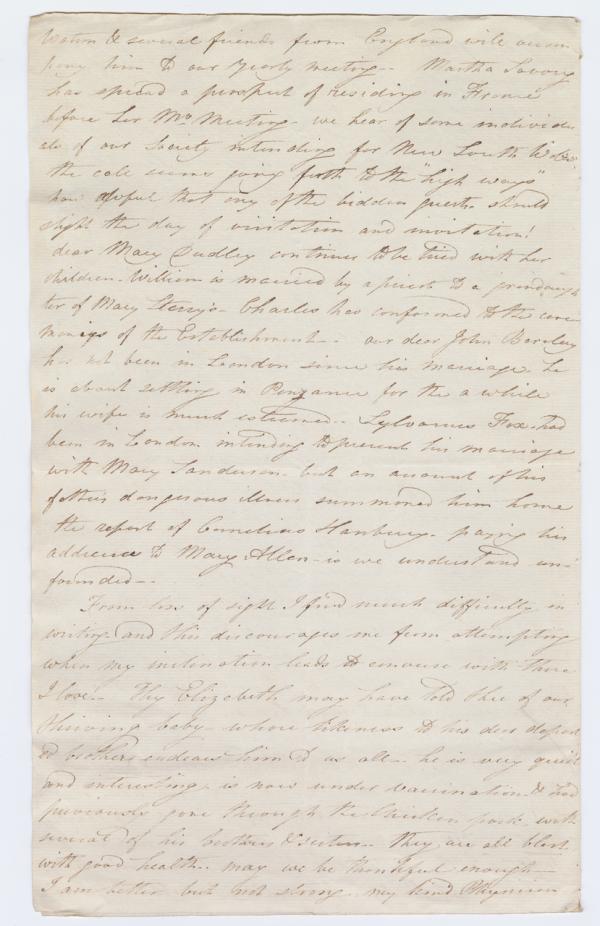 & several friends from England will accom
pany him to our Yearly meeting - Martha Savory
has spread a prospect of residing in France
before her Mo. Meeting - we hear of some individu
als of our Society intending for New South Wales
the call seems going forth to the "high ways"
how awful that any of the bidden guests should
slight the day of visitation and invitation!
dear Mary Dudley continues to be tried with her
children - William is married by a priest to a grandaugh
ter of Mary Sterry's - Charles has conformed to the cere
monies of the Establishment - our dear John Barclay
has not been in London since his marriage he
is about settling in Penzance for the a while
his wife is much esteemed - Sylvanus Fox had
been in London intending to present his marriage
with Mary Sanderson - but an account of his
fathers dangerous illness summoned him home
the report of Cornelius Hanbury - paying his
addresses to Mary Allen - is we understand un-
founded -
From loss of sight I find much difficulty in
writing and this discourages me from attempting
when my inclination leads to converse with those
I love - Thy Elizabeth may have told thee of our
thriving baby - whose likeness to his dear depart
ed brother endears him to us all - he is very quiet
and interesting, is now under vaccination & had
previously gone through the Chicken pock with
several of his brothers & sisters - they are all blest
with good health - may we be thankful enough -
I am better but not strong - my kind Physician